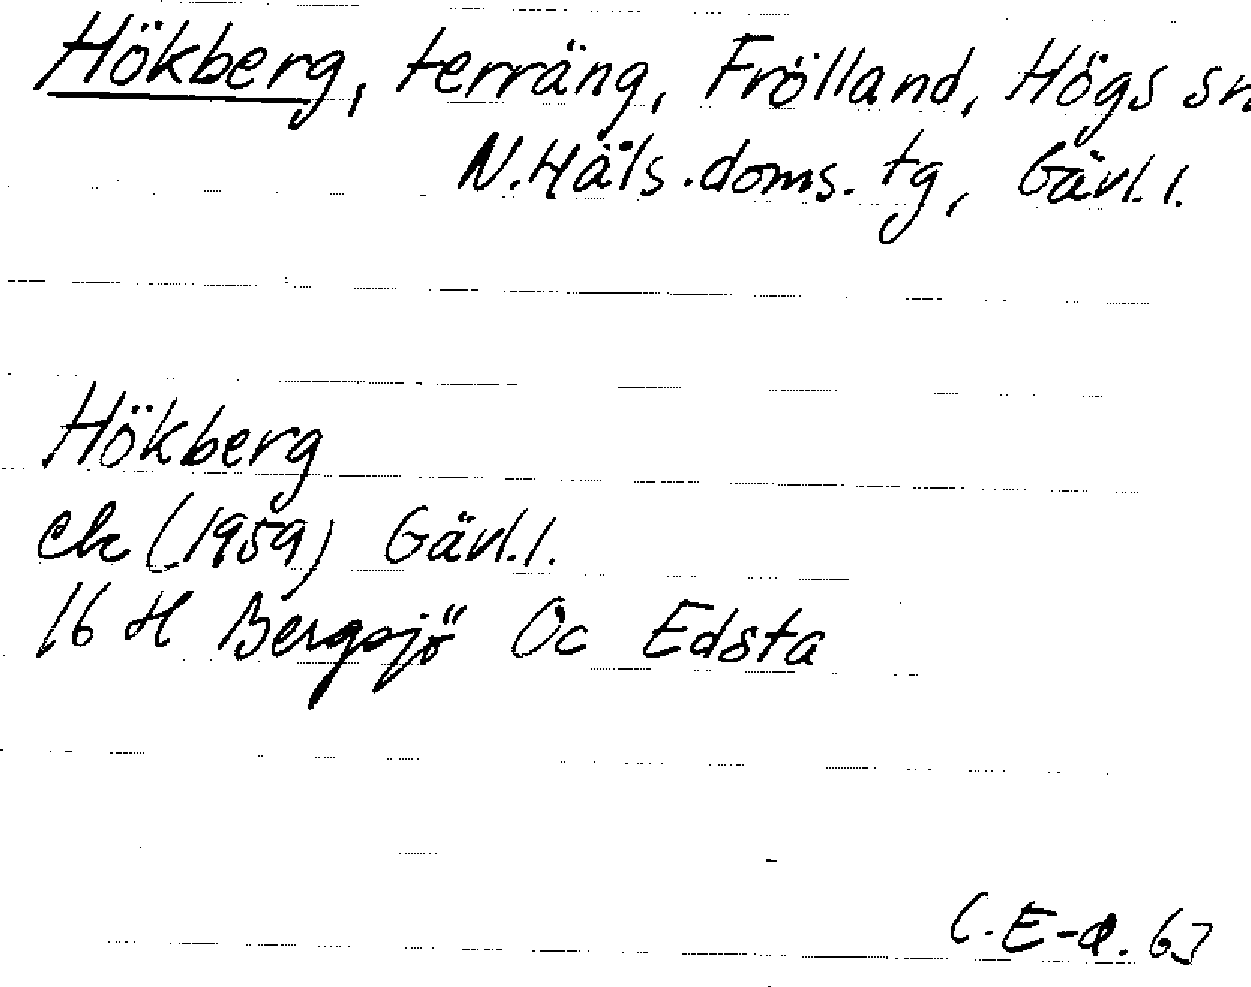 Hökberg, terräng, Frölland, Högs sn.
N.Häls.doms.tg, Gävl.l.
Hökberg
ek (1959) Gävl.l.
16 H Bergsjö Öc Edsta
C.E-a. 63